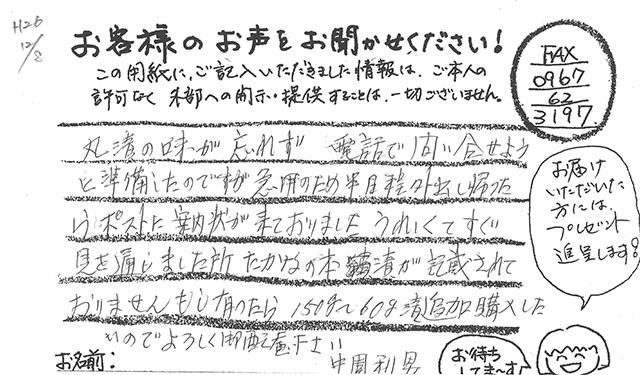 H26
12/8
お客様のお声をお聞かせください!
この用紙に、ご記入いただきました情報は、ご本人の
許可なく外部への開示・提供することは、一切ございません。
FAX
0967
62
3197
丸漬の味が忘れず 電話で問い合せよう
と準備したのですが急用のため半月程外出し帰った
らポストに案内状が来ておりましたうれしくてすぐ
見を通しました所たかなの本漬が記載されて
おりませんもし有ったら150g〜60g漬追加購入した
いのでよろしく御配慮下さい
中園利男
お名前:
お届け
いただいた
方には、
プレゼント
進呈します!
お待ち
してま〜す♪